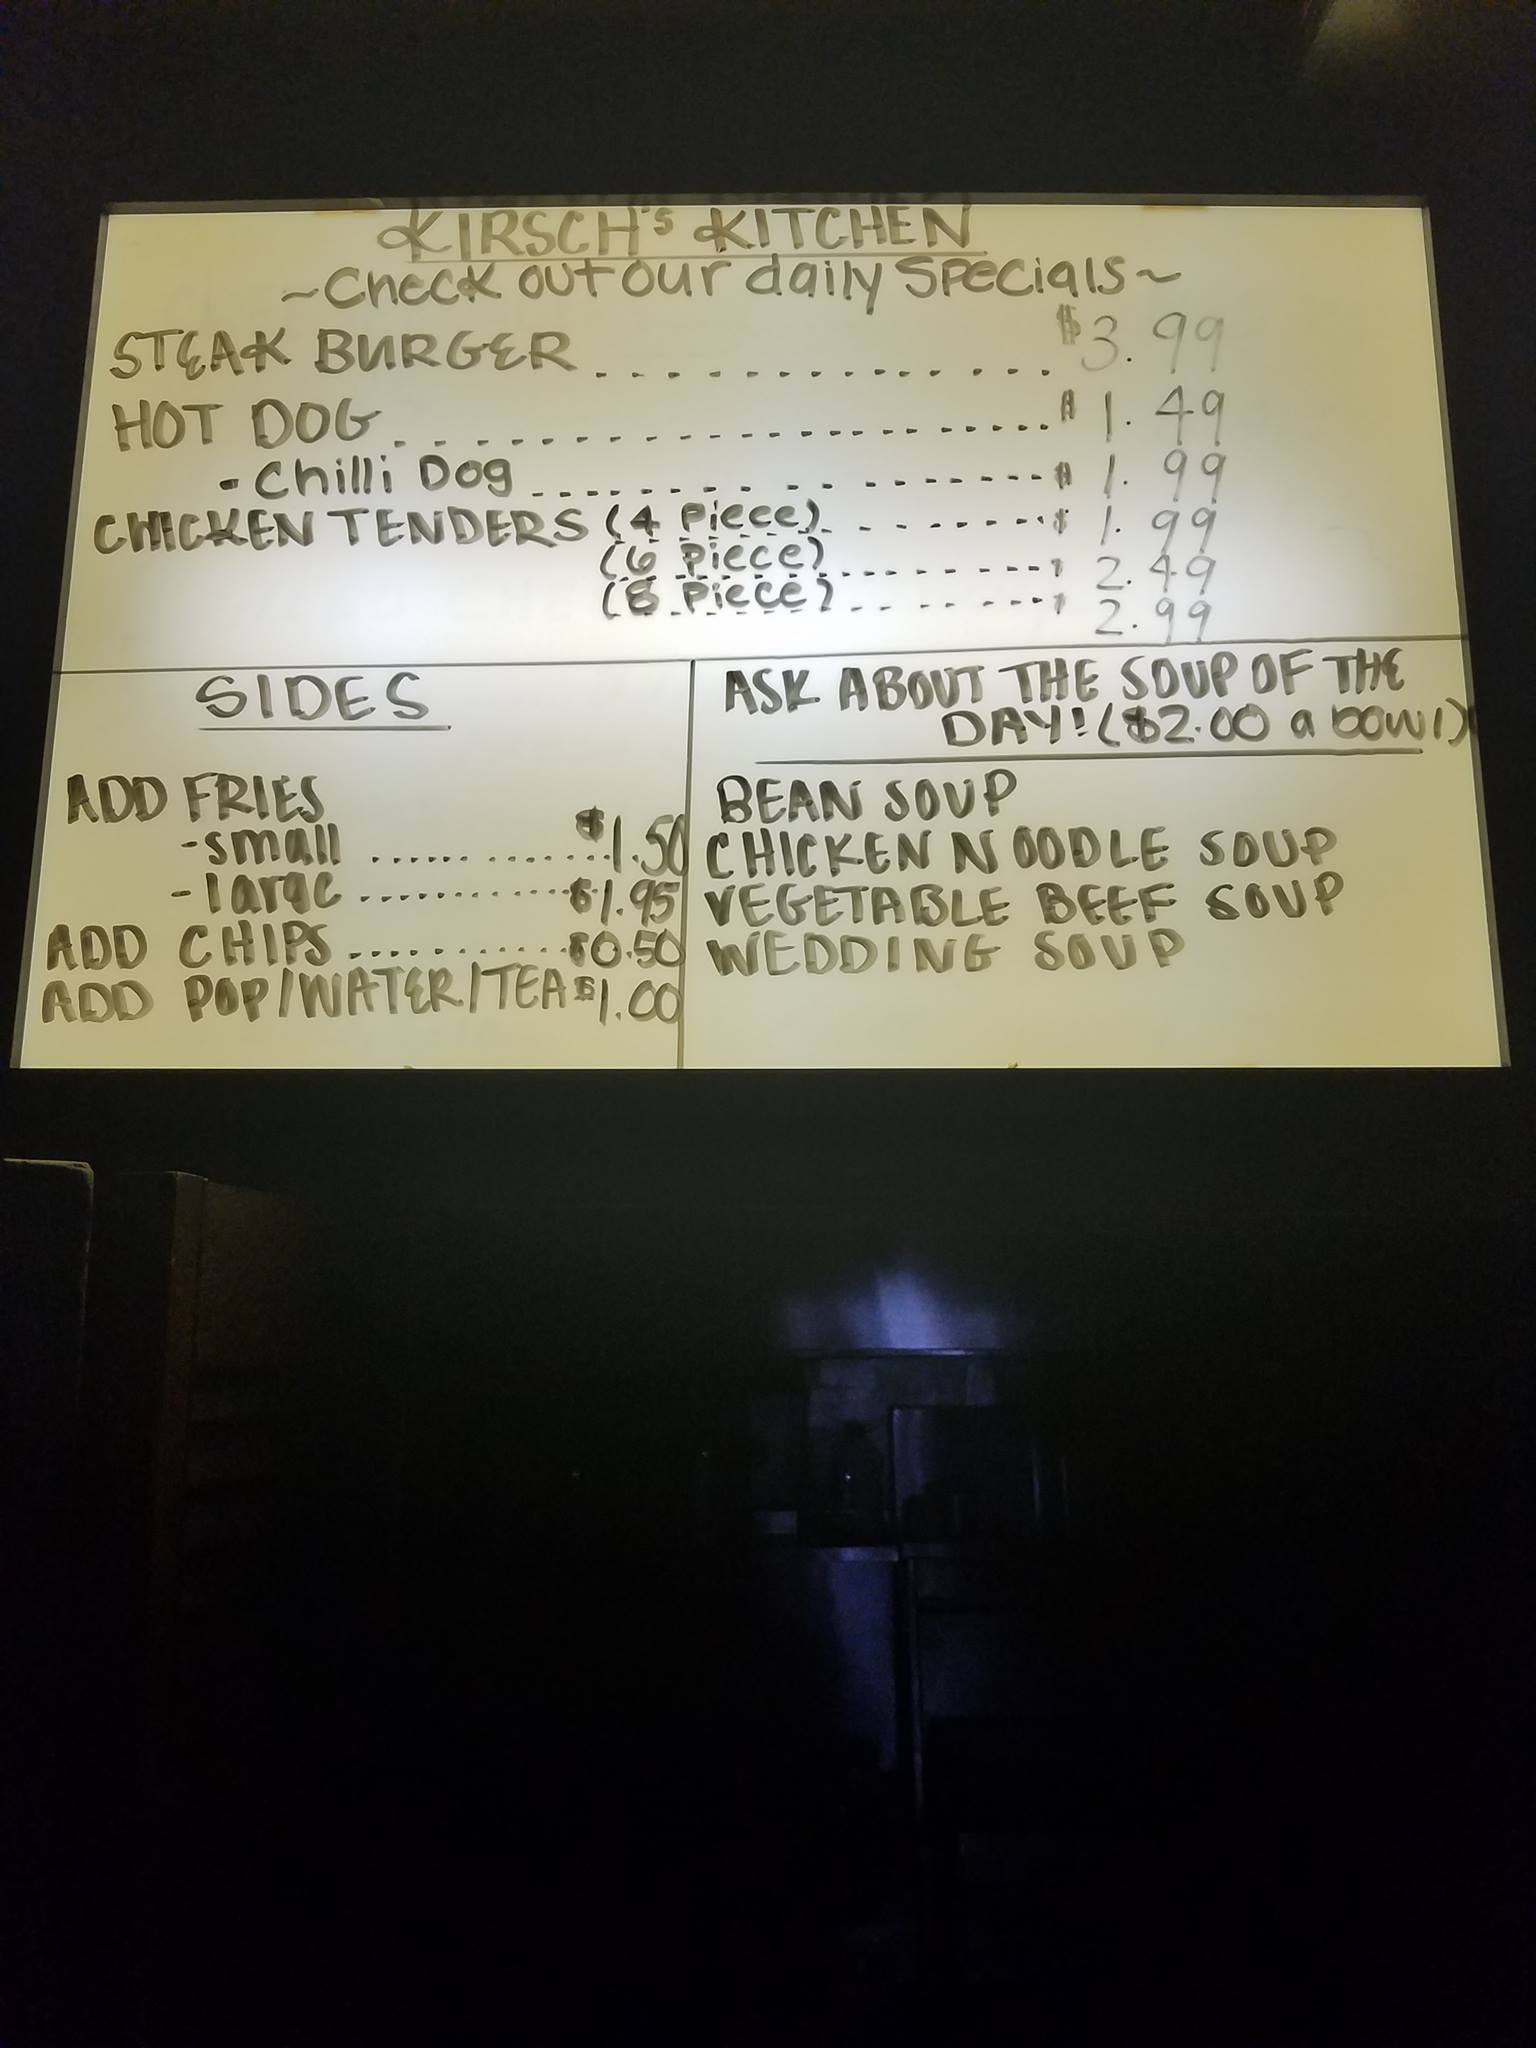 KIRSCH'S KITCHEN
~Check out our daily Specials~
STEAK BURGER .............. $3.99
HOT DOG .................... $1.49
- Chilli Dog ................ $1.99
CHICKEN TENDERS (4 Piece) ........ $1.99
(6 Piece) ......... $2.49
(8 Piece) ....... $2.99
SIDES
ADD FRIES
- small ............. $1.50
- large ............. $1.95
ADD CHIPS ............ $0.50
ADD POP/WATER/TEA $1.00
ASK ABOUT THE SOUP OF THE
DAY! ($2.00 a bowl)
BEAN SOUP
CHICKEN NOODLE SOUP
VEGETABLE BEEF SOUP
WEDDING SOUP